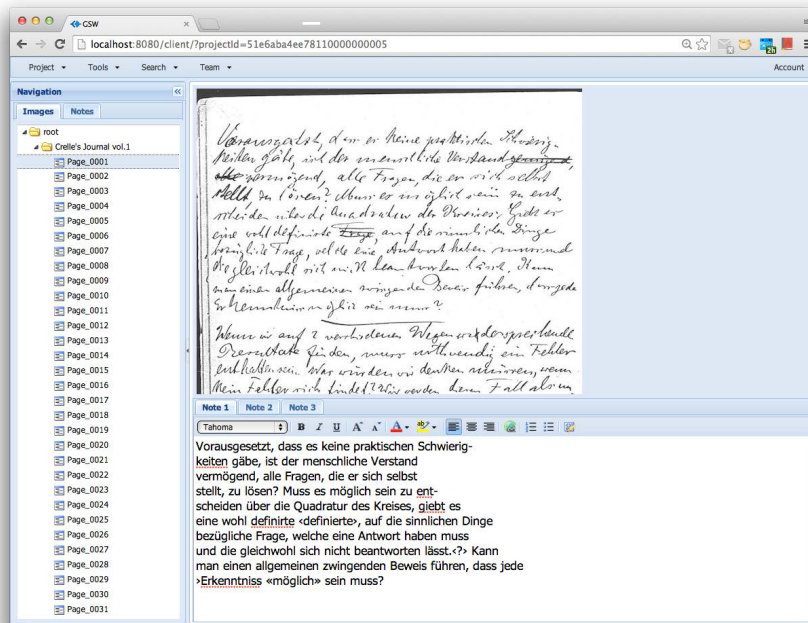 GSW
localhost:8080/client/?projectId=51e6aba4ee78110000000005
Project Tools Search Team Account
Navigation
Images Notes
root
Crelle's Journal vol.1
Page_0001
Page_0002
Page_0003
Page_0004
Page_0005
Page_0006
Page_0007
Page_0008
Page_0009
Page_0010
Page_0011
Page_0012
Page_0013
Page_0014
Page_0015
Page_0016
Page_0017
Page_0018
Page_0019
Page_0020
Page_0021
Page_0022
Page_0023
Page_0024
Page_0025
Page_0026
Page_0027
Page_0028
Page_0029
Page_0030
Page_0031
Vorausgesetzt, dass es keine praktischen Schwierig-
keiten gäbe, ist der menschliche Verstand
vermögend, alle Fragen, die er sich selbst
stellt, zu lösen? Muss es möglich sein zu ent-
scheiden über die Quadratur des Kreises, Giebt es
eine wohl definirte Frage, auf die sinnlichen Dinge
bezügliche Frage, welche eine Antwort haben muss und
die gleichwohl sich nicht beantworten lässt. Kann
man einen allgemeinen zwingenden Beweis führen, dass jede
Erkenntniss möglich sein muss?
Wenn wir auf 2 verschiedenen Wegen widersprechende
Resultate finden, muss nothwendig ein Fehler
enthalten sein. Was würden wir denken müssen, wenn
kein Fehler sich findet? Wir werden diesen Fall als un
Note 1 Note 2 Note 3
Tahoma B I U A A A ab
Vorausgesetzt, dass es keine praktischen Schwierig-
keiten gäbe, ist der menschliche Verstand
vermögend, alle Fragen, die er sich selbst
stellt, zu lösen? Muss es möglich sein zu ent-
scheiden über die Quadratur des Kreises, giebt es
eine wohl definirte ‹definierte›, auf die sinnlichen Dinge
bezügliche Frage, welche eine Antwort haben muss
und die gleichwohl sich nicht beantworten lässt.‹?› Kann
man einen allgemeinen zwingenden Beweis führen, dass jede
›Erkenntniss «möglich» sein muss?